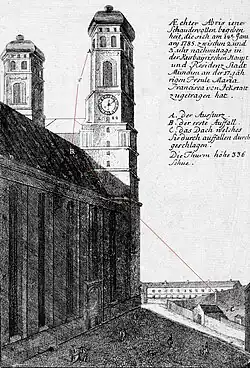 Æchter Abris iener
Schaudervollen begeben
heit, die sich am 14t Jan.
ay 1785. zwischen 2. und
3. uhr nachmittags in
der Kurbayrischen Haupt
und Residenz Stadt
München an der 17. jäh
rigen Freule Maria
Francisca von Ickstatt
zugetragen hat.
A. der Aussturz.
B. der erste Auffall.
C. das Dach welches
Sie durch auffallen durch
geschlagen.
Die Thurm höhe 336
Schue.